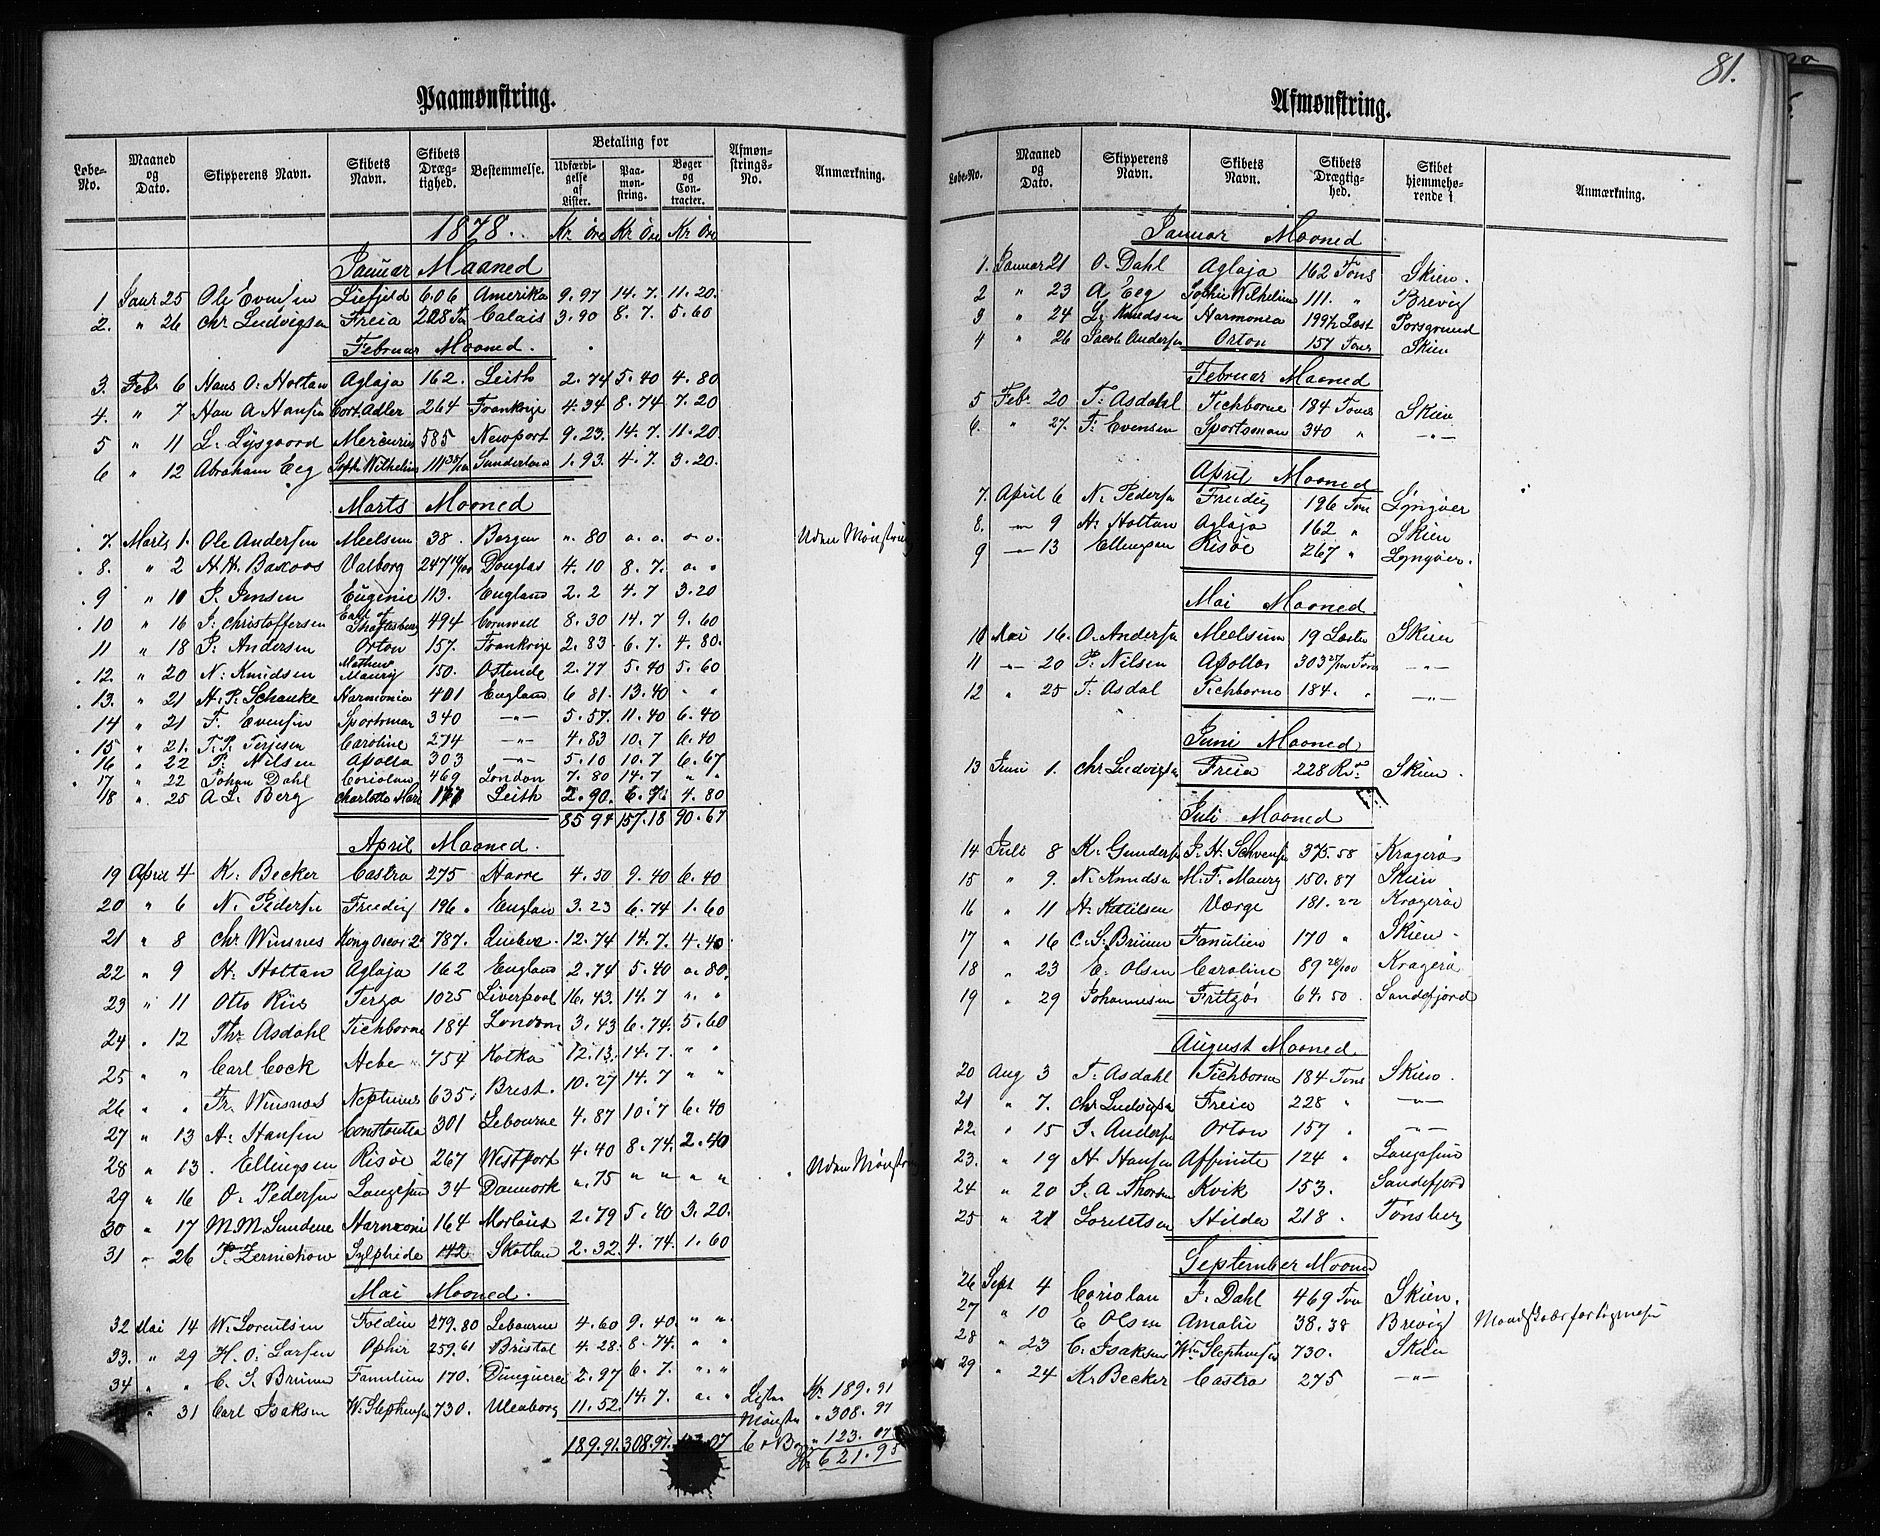 Paamønstring.
Løbe-No. | Maaned og Dato. | Skipperens Navn. | Skibets Navn. | Skibets Dræg-tighed. | Bestemmelse. | Betaling for | Afmøn-strings-No. | Anmærkning.
Udfærdi-gelse af Lister. | Paa-mon-string. | Bøger og Con-tracter.
1878. Kr Øre Kr Öre Kr Öre
Januar Maaned
1 Janr 25 Ole Evensen Liefjeld 606 Amerika 9.97 14.7. 11.20.
2. " 26 Chr Ludvigsen Freia 228 Calais 3.90 8.7. 5.60
Februar Maaned.
3. Febr 6 Hans O. Holtan Aglaja 162. Leith 2.74 5.40 4.80
4. " 7 Han A Hansen Cort Adler 264 Frankrige 4.34 8.74 7.20
5 " 11 L. Lysgaard Mercurius 585 Newport 9.23. 14.7. 11.20.
6 " 12 Abraham Eeg Soph. Wilhelm 111 Sunderland 1.93. 4.7. 3.20.
Marts Maaned
7. Marts 1. Ole Andersen Meelsum 38. Bergen ". 80 Uden Mønstring
8. " 2 H. H. Valborg 247 Douglas 4.10 8.7.
9 " 10 J. Jensen Eugenie 113. England 2.2 4.7 3.20
10 " 16 J. Christoffersen Earl of Shaftesbury 494 Cornwall 8.30 14.7 9.60
11 " 18 J. Andersen Orton 157. Frankrige 2.83. 6.7. 4.80.
12. " 20 N. Knudsen Mathew Maury 150. Ostende 2.77 5.40 5.60
13. " 21 H. P. Schanke Harmonia 401 England 6 81. 13.40 " "
14 " 21 F. Evensen Sportsman 340 —"— 5.57. 11.40 6.40
15 " 21. T. P. Terjesen Caroline 274 —"— 4.83 10.7 6.40
16 " 22 P. Nilsen Apollo 303 —"— 5.10 10.7 6.67
17 " 22 Johan Dahl Coriolan 469 London 7.80 14.7 " "
18 " 25 A L. Berg Charlotte Mari Leith 2.90. 6.7. 4.80
85 94 157.18 90.67
April Maaned.
19 April 4 K. Becker Castro 275 Havre 4.50 9.40 6.40
20 " 6 N. Pedersen Freidig 196. England 3.23 6.74 1.60
21 " 8 Chr. Winsnes Kong Oscar 2. 787. Quebec. 12.74 14.7. 4.40
22 " 9 H. Holtan Aglaja 162 England 2.74 5.40 80.
23 " 11 Otto Riis 1025 Liverpool 16.43. 14.7 " "
24 " 12 Thr. Asdahl Tichborne 184 London 3.43 6.74. 5.60
25 " " Carl Cock Hebe 754 Kotka 12.13. 14.7. " "
26 " " Fr. Winsnes Neptunus 635. Brest. 10.27 14.7 " "
27 " 13 H. Hansen Constantia 301 Lebourne 4.87 10.7 6.40
28 " 13. Ellingsen Risøe 267 Westport 4.40 8.74. 2.40
29 " 16 O. Pedersen Langesund 34 Danmark ". 75 " " " " Uden Mønstring
30 " 17 M. M. Harmoni 164 Morlaix 2.79 5.40 3.20.
31 " 26 P. Zernichow Sylphide 142 Skotland 2.32. 4.74. 1.60
Mai Maaned.
32 Mai 14 W. Lorentsen Foldin 279.80 Lebourne 4.60 9.40. " "
33. " 29 H. O. Larsen Ophir 259.61 Bristol 4.28. 8.74. " "
34 " " C. S. Bruun Familien 170. 2.97 6.7. " "
" 31 Carl Isaksen W. Stephensen 730. Uleaborg 11.52. 14.7. " " Lister Kr. 189.91
Mønster " 308.97
189.91. 308.97. 07 C & Bøger " 123.07
Kr 621.95

81.
Afmønstring.
Løbe-No. | Maaned og Dato. | Skipperens Navn. | Skibets Navn. | Skibets Drægtig-hed. | Skibet hjemmehø-rende i | Anmærkning.
Januar Maaned
1. Januar 21 O. Dahl Aglaja 162 Tons Skien.
2 " 23 A Eeg Sophie Wilhelmine 111. " Brevig
3 " 24 L. Knudsen Harmonia 199½ Læst Porsgrund
4 " 26 Jacob Andersen Orton 157 Tons Skien
Februar Maaned
5 Febr. 20 T. Asdahl Tichborne 184 Tons Skien
6. " 27. F. Evensen Sportsman 340 " —"—
April Maaned
7. April 6 N. Pedersen Freidig 196 Tons Lyngøer
8. —"— 9 H. Holtan Aglaja 162 " Skien
9 —"— 13 Ellingsen Risøe 267 " Lyngøer.
Mai Maaned.
10 Mai 16. O. Andersen Meelsum 19 Læster Skien
11 —"— 20 P. Nilsen Apollo 303 Tons —"—
12 " 25 T. Asdal Tichborne 184. " —"—
Juni Maaned
13 Juni 1. Chr Ludvigsen Freia 228 R.T. Skien.
Juli Maaned
14 Juli 8 K. Gundersen J. H. 375.58 Kragerø
15 " 9. N. Knudsen M. F. Maury 150.87 Skien
16 " 11 H. Kittilsen Værge 181.22 Kragerøe
17 " 16 C. S. Bruun Familien 170 " Skien
18 " 23 E. Olsen Caroline 89 28/100 Kragerø
19 " 29 Johannesen Fritzøe 64.50. Sandefjord
August Maaned
20 Aug 3 T. Asdahl Tichborne 184 Tons Skien.
21 " 7. Chr Ludvigsen Freia 228 " —"—
22. " 15 J. Andersen Orton 157 " —"—
23. " 19 H Hansen Affinite 124 " Langesund
24 " 20 P. A Thorsen Kvik 153. Sandefjord
25 " 21 Lorentsen Hilda 218. Tønsberg
September Maaned
26 Sept 4 Coriolan J. Dahl 469 Tons Skien.
27 " 10 E Olsen Amalie 38.38 Brevig Mandskabsfortegnelse
28 " 23 C. Isaksen Wm Stephensen 730. Skien
29 " 24 Kr Becker Castro 275 —"—